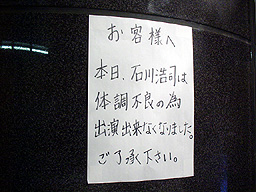 お客様へ
本日、石川浩司は
体調不良の為
出演出来なくなりました。
ご了承下さい。